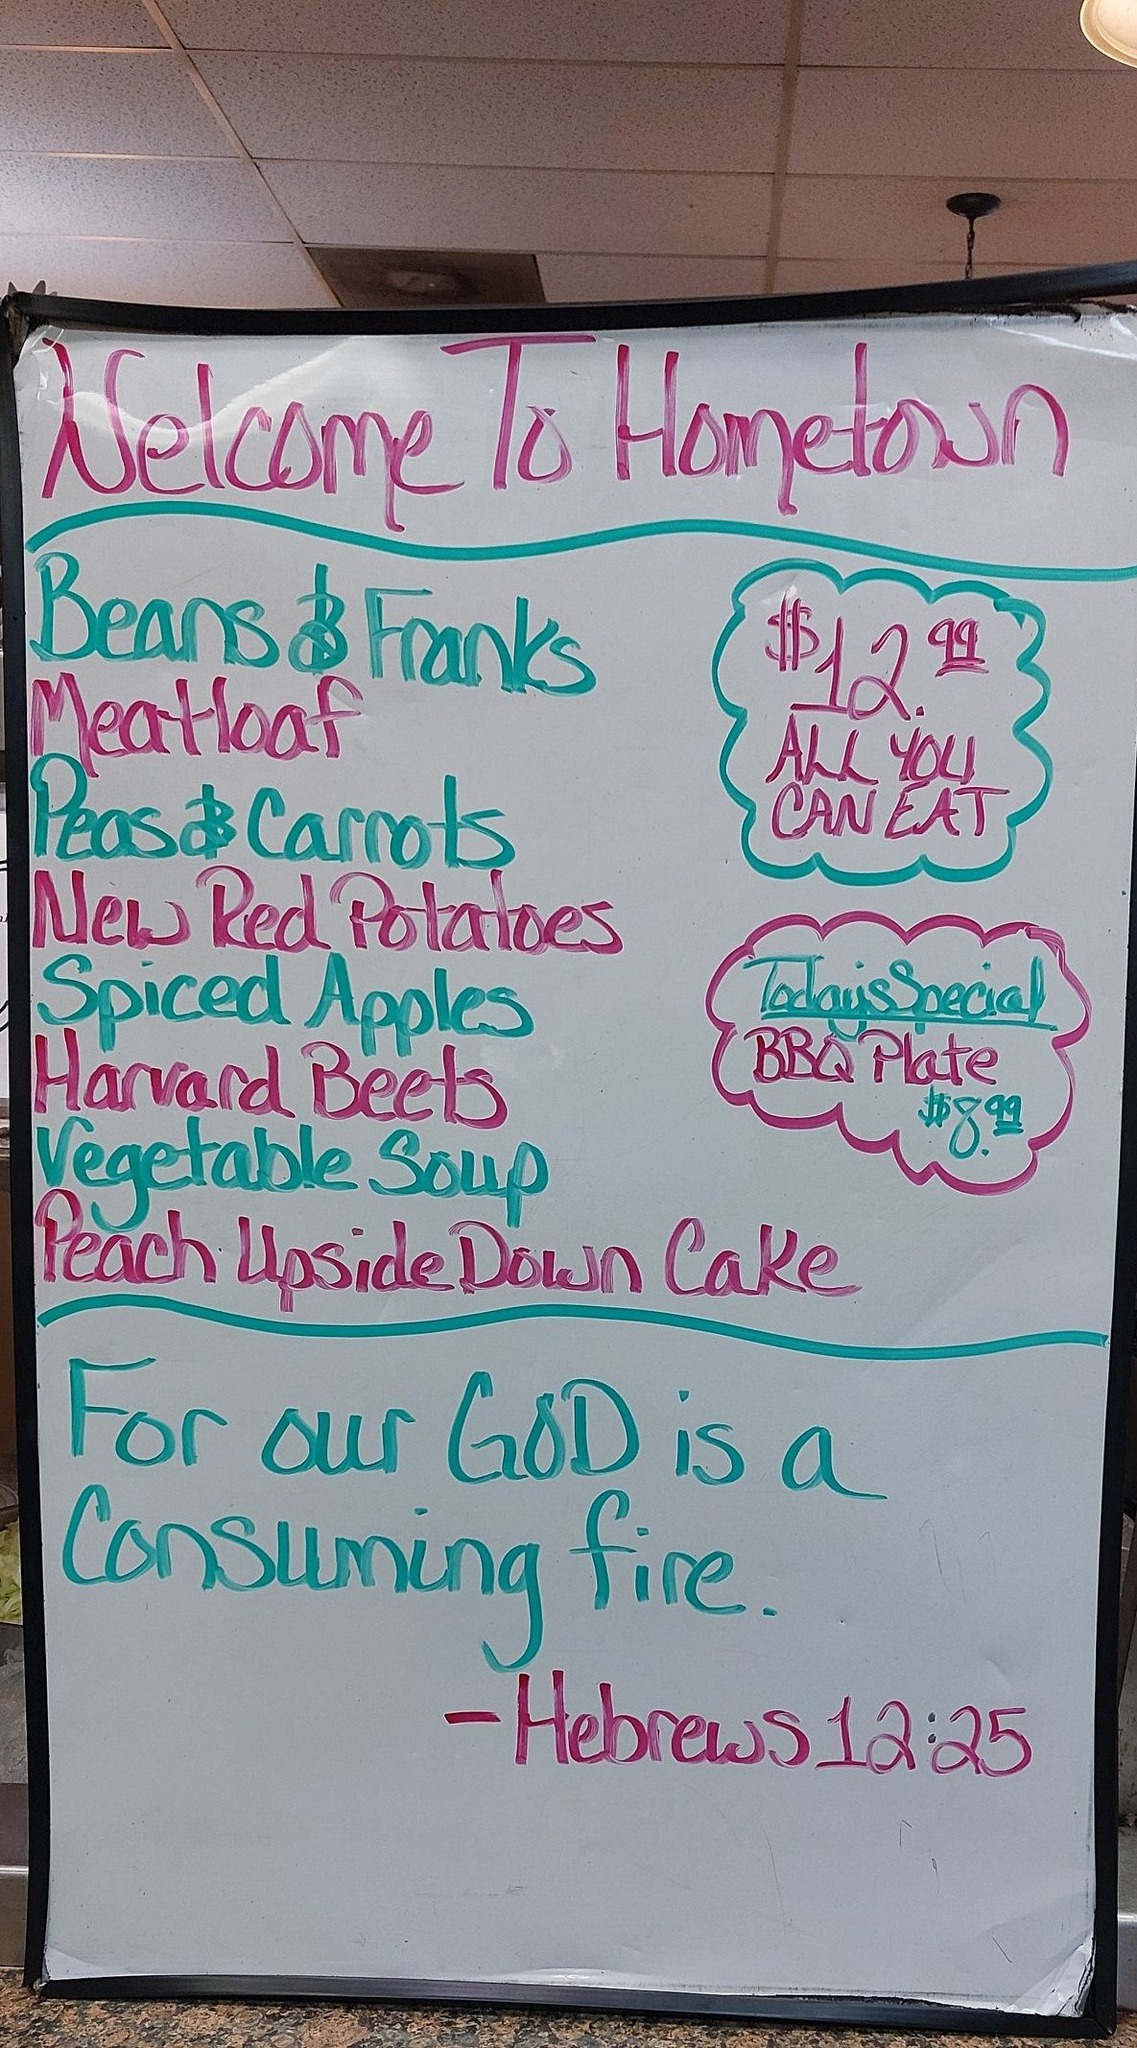 Welcome To Hometown
Beans & Franks
Meatloaf
Peas & Carrots
New Red Potatoes
Spiced Apples
Harvard Beets
Vegetable Soup
Peach Upside Down Cake
$12.99
ALL YOU
CAN EAT
Today's Special
BBQ Plate
$8.99
For our GOD is a
Consuming fire.
- Hebrews 12:25